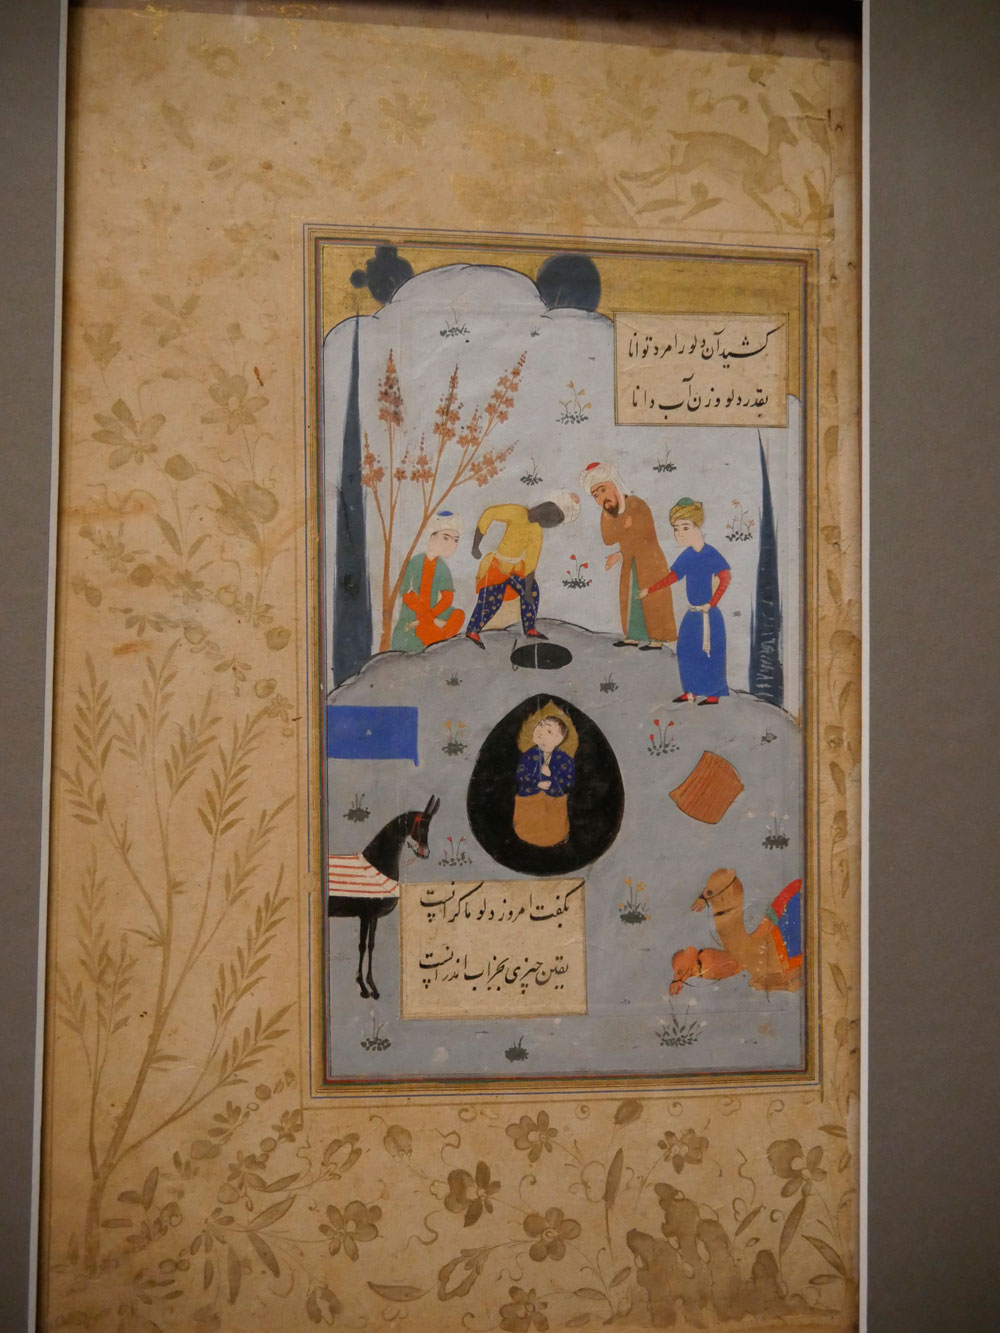 کشید آن دلو را مرد توانا
بقدر دلو و وزن آب دانا
بگفت امروز دلو ما گرانست
یقین چیزی بجز آب اندر آنست